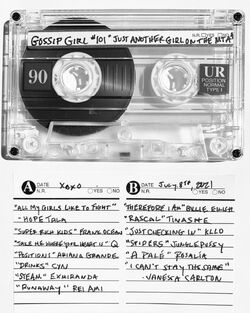 GOSSIP GIRL #101 "JUST ANOTHER GIRL ON THE MTA"
N.R. YES NO
90
UR
POSITION
NORMAL
TYPE I
A DATE XOXO
N.R. YES NO
"ALL MY GIRLS LIKE TO FIGHT"
- HOPE TALA
"SUPER RICH KIDS" FRANK OCEAN
"TAKE ME WHERE YOUR HEART IS" Q
"POSITIONS" ARIANA GRANDE
"DRINKS" CYN
"STEAM" EMIRANDA
"RUNAWAY" REI AMI
B DATE JULY 8TH, 2021
N.R. YES NO
"THEREFORE I AM" BILLIE EILISH
"RASCAL" TINASHE
"JUST CHECKING IN" KLLO
"SPIDERS" JUNGLEPUSSY
"A PALÉ" ROSALIA
"I CAN'T STAY THE SAME"
- VANESSA CARLTON